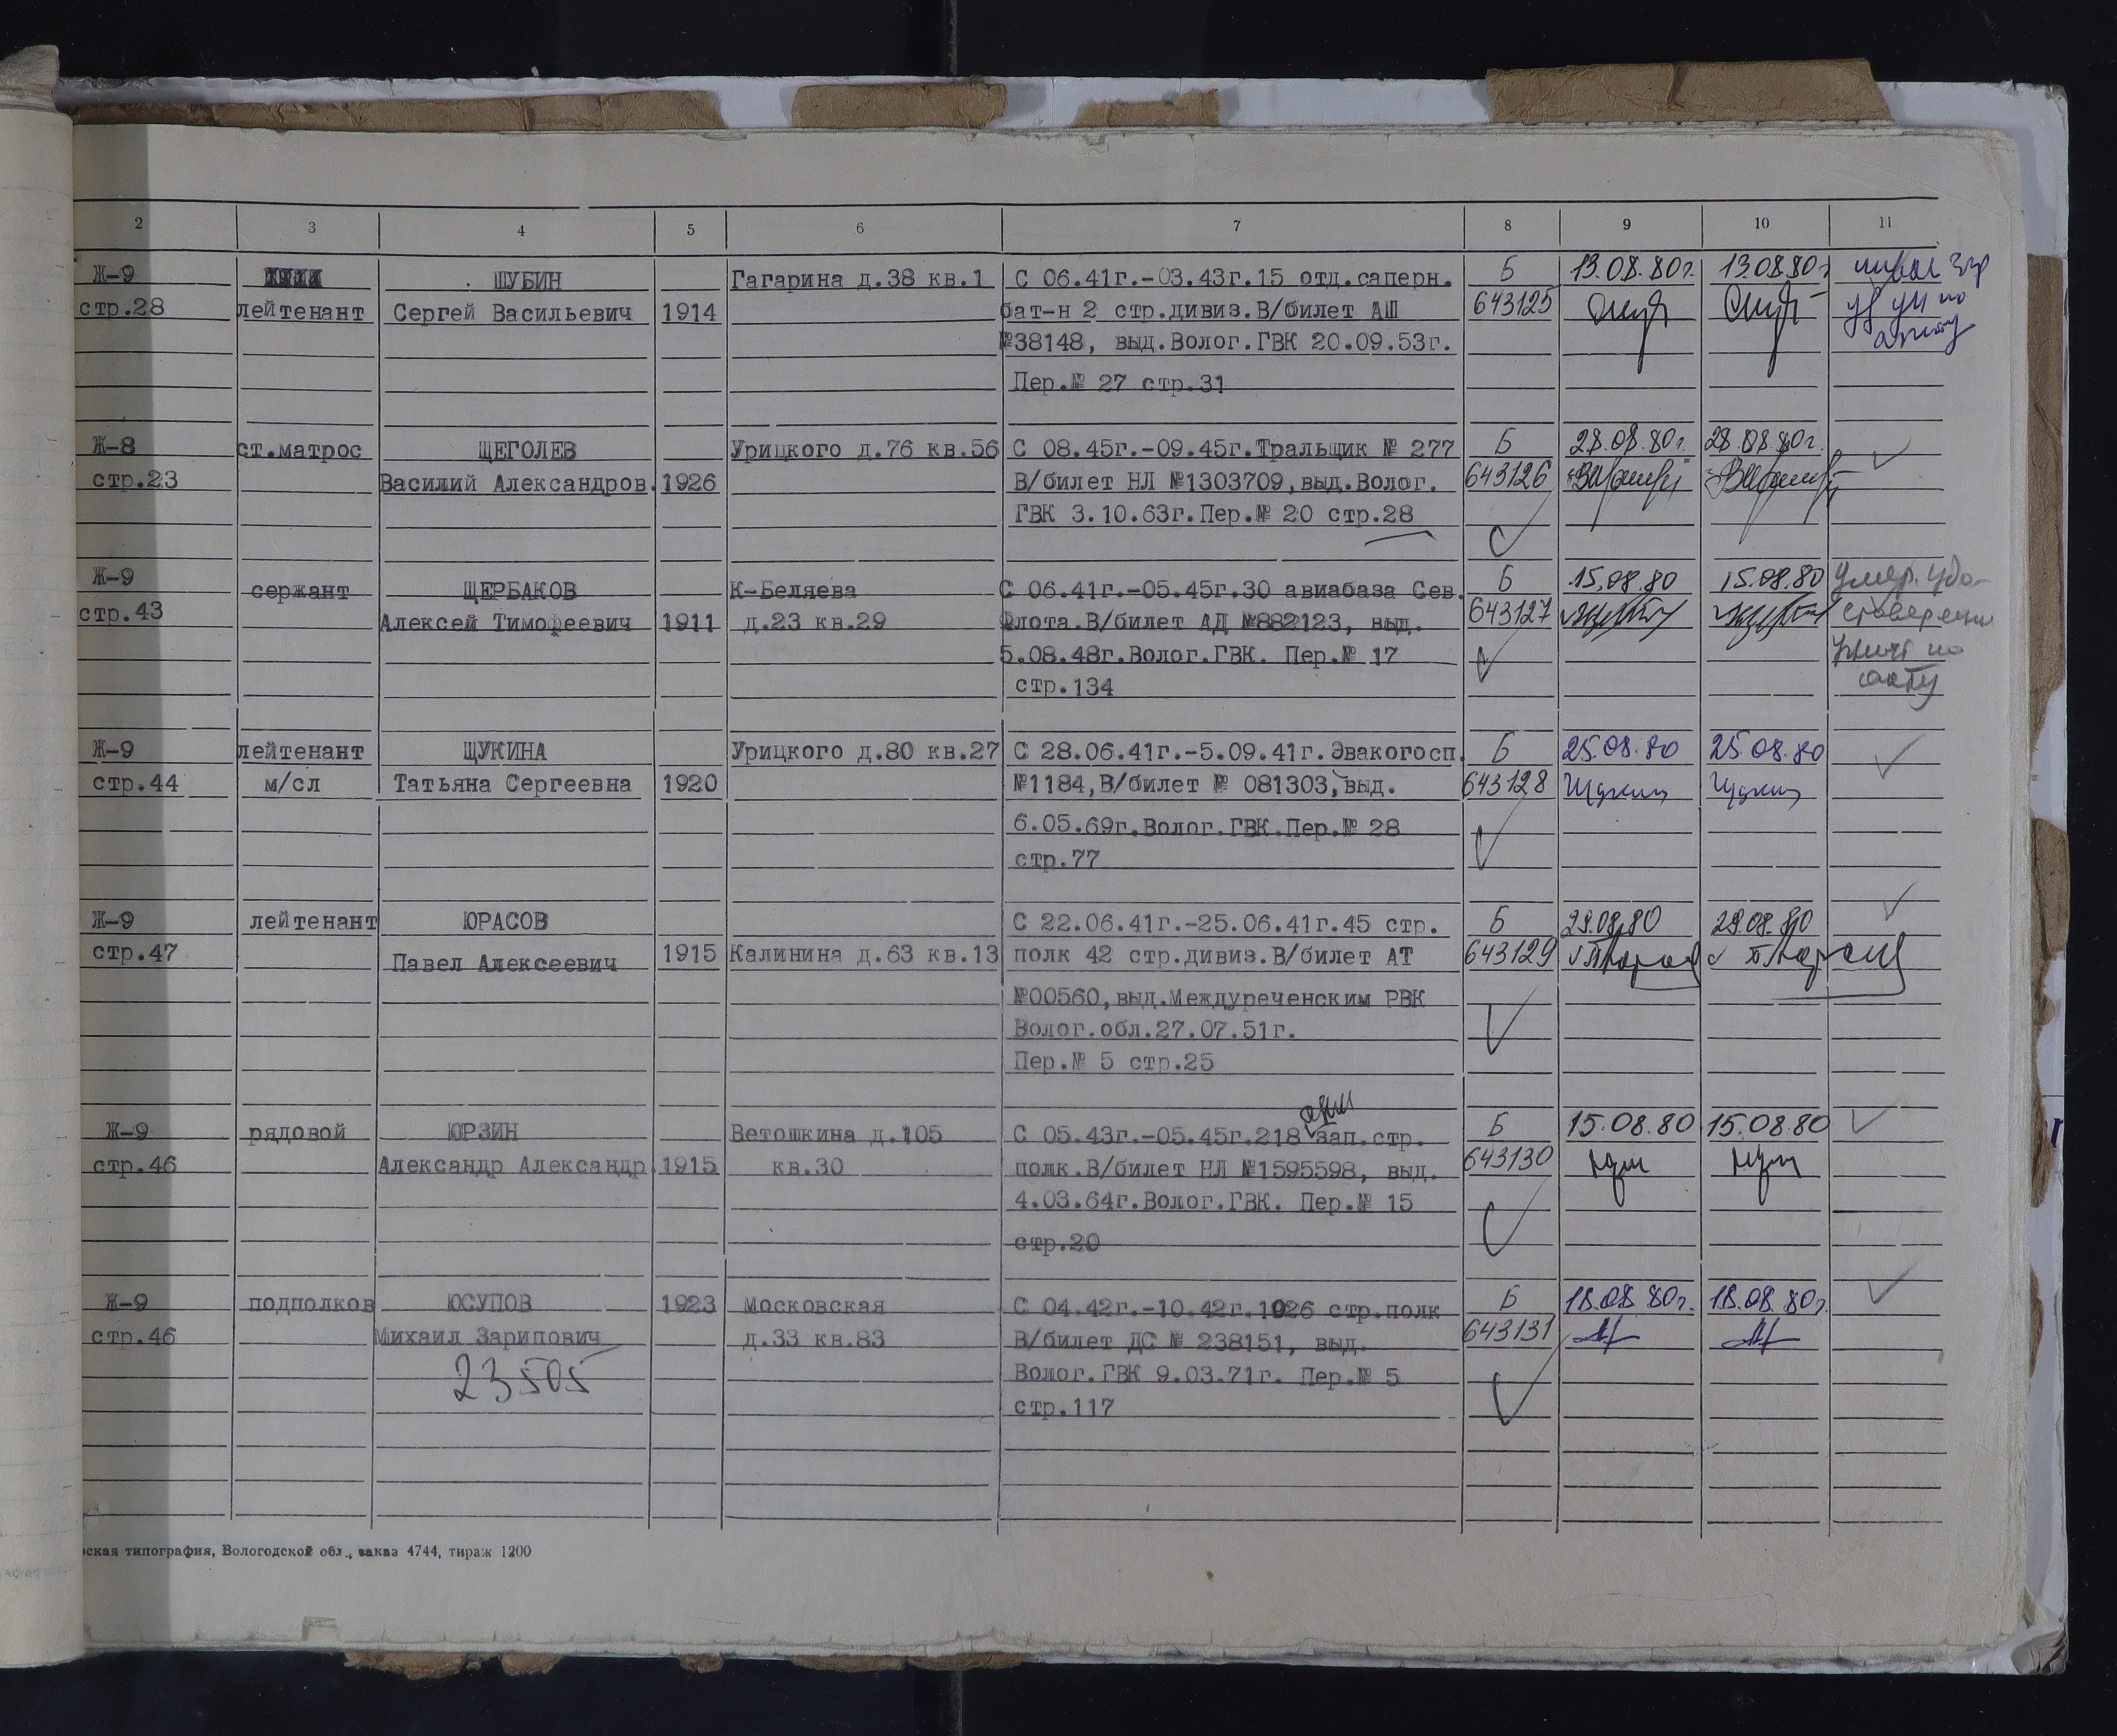 2 3 4 5 6 7 8 9 10 11
Ж-9 ШУБИН Гагарина д.38 кв.1 С 06.41г.-03.43г.15 отд.саперн. Б 13.08.80г. 13.08.80г
стр.28 лейтенант Сергей Васильевич 1914 бат-н 2 стр.дивиз.В/билет АШ 643125
№38148, выд.Волог.ГВК 20.09.53г.
Пер.№ 27 стр.31
Ж-8 ст.матрос ЩЕГОЛЕВ Урицкого д.76 кв.56 С 08.45г.-09.45г.Тральщик № 277 Б 28.08.80г. 28.08.80г.
стр.23 Василий Александров. 1926 В/билет НЛ №1303709,выд.Волог. 643126
ГВК 3.10.63г.Пер.№ 20 стр.28
Ж-9 сержант ЩЕРБАКОВ К-Беляева С 06.41г.-05.45г.30 авиабаза Сев. Б 15.08.80 15.08.80 Умер. Удо-
стр.43 Алексей Тимофеевич 1911 д.23 кв.29 Флота.В/билет АД №882123, выд. 643127 стоверение
5.08.48г.Волог.ГВК. Пер.№ 17 унич по
стр.134 акту
Ж-9 лейтенант ЩУКИНА Урицкого д.80 кв.27 С 28.06.41г.-5.09.41г.Эвакогосп. Б 25.08.80 25.08.80
стр.44 м/сл Татьяна Сергеевна 1920 №1184,В/билет № 081303,выд. 643128 Щукин Щукин
6.05.69г.Волог.ГВК.Пер.№ 28
стр.77
Ж-9 лейтенант ЮРАСОВ С 22.06.41г.-25.06.41г.45 стр. Б 29.08.80 29.08.80
стр.47 Павел Алексеевич 1915 Калинина д.63 кв.13 полк 42 стр.дивиз.В/билет АТ 643129
№00560,выд.Междуреченским РВК
Волог.обл.27.07.51г.
Пер.№ 5 стр.25
Ж-9 рядовой ЮРЗИН Ветошкина д.105 С 05.43г.-05.45г.218 зап.стр. Б 15.08.80 15.08.80
стр.46 Александр Александр. 1915 кв.30 полк.В/билет НЛ №1595598, выд. 643130
4.03.64г.Волог.ГВК. Пер.№ 15
стр.20
Ж-9 подполков ЮСУПОВ 1923 Московская С 04.42г.-10.42г.1026 стр.полк Б 18.08.80г. 18.08.80г.
стр.46 Михаил Зарипович д.33 кв.83 В/билет ДС № 238151, выд. 643131
23505 Волог.ГВК 9.03.71г. Пер.№ 5
стр.117
ская типография, Вологодской обл., заказ 4744, тираж 1200